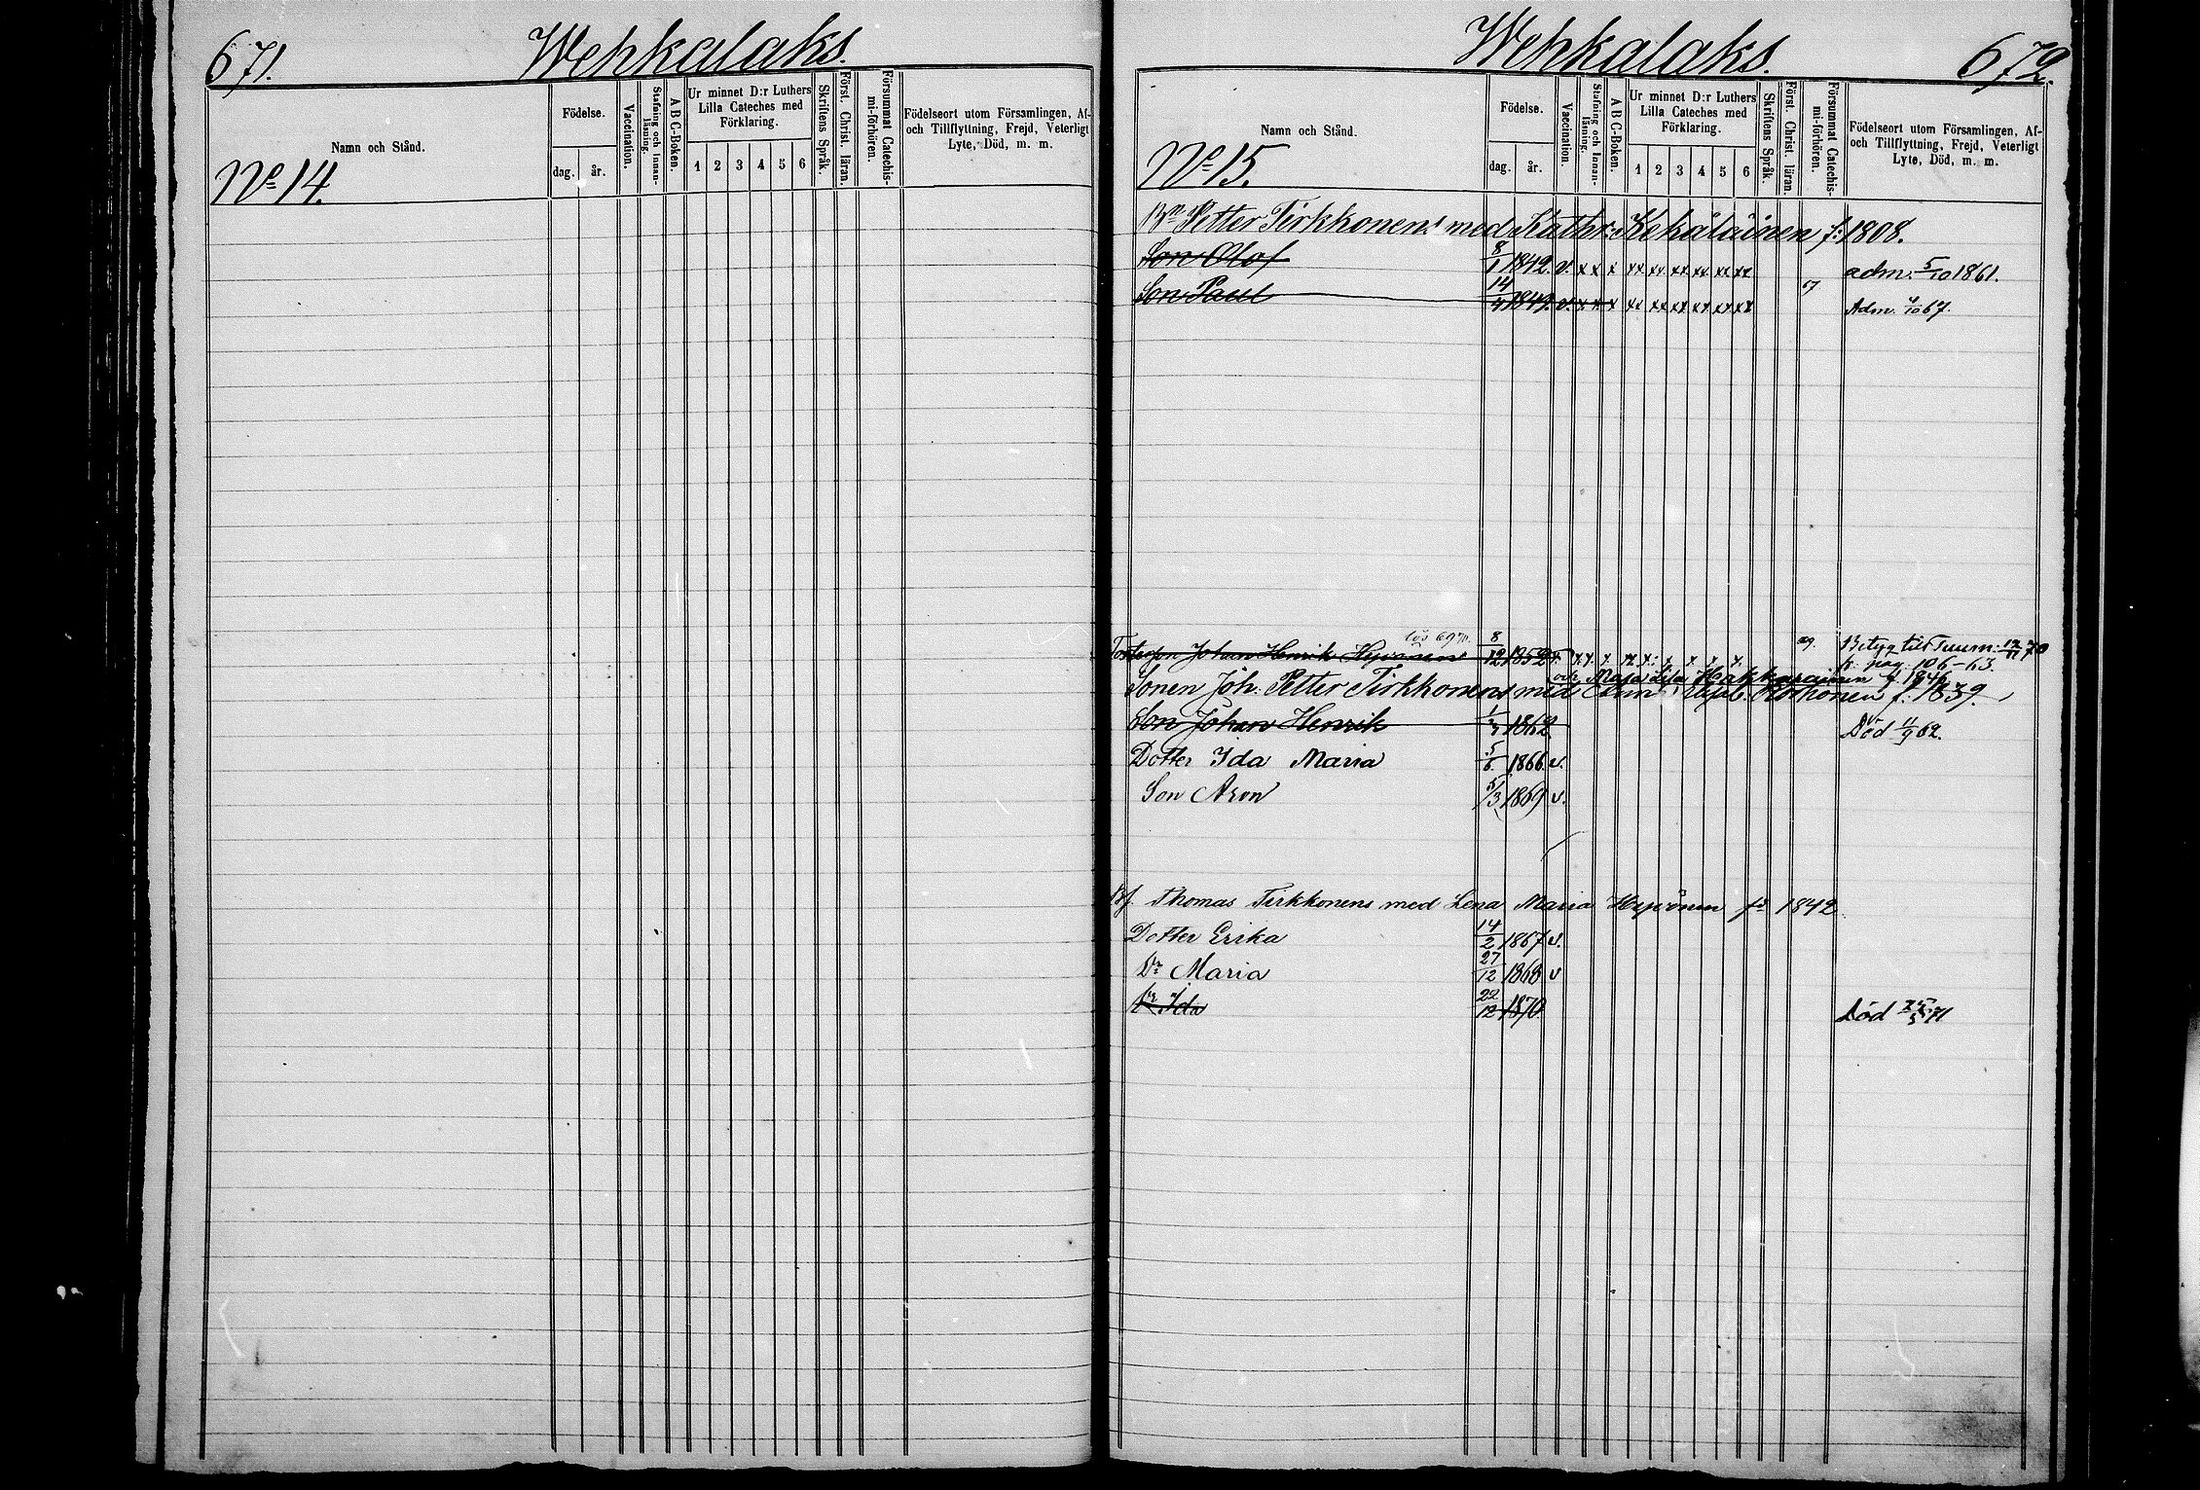 671. Wehkalaks.
Namn och Stånd.
Födelse.
dag. år.
Vaccination.
Stafning och Innanläsning.
A B C-Boken.
Ur minnet D:r Luthers Lilla Cateches med Förklaring.
1 2 3 4 5 6
Skriftens Språk.
Först. Christ. läran.
Försummat Catechismi-förhören.
Födelseort utom Församlingen, Af- och Tillflyttning, Frejd, Veterligt Lyte, Död, m. m.
No 14.
Wehkalaks. 672.
Namn och Stånd.
Födelse.
dag. år.
Vaccination.
Stafning och Innanläsning.
A B C-Boken.
Ur minnet D:r Luthers Lilla Cateches med Förklaring.
1 2 3 4 5 6
Skriftens Språk.
Först. Christ. läran.
Försummat Catechismi-förhören.
Födelseort utom Församlingen, Af- och Tillflyttning, Frejd, Veterligt Lyte, Död, m. m.
No 15.
Petter Tirkkonens med Kathr: Kekäläinen f: 1808.
Son Olof 8/1 1842. v. x x x xx xx xx xx xx xx adm. 5/10 1861.
Son Paul 14/ v. x x x xx xx xx xx xx xx Adm. 4/10 67.
Johan Henrik Hyvönen 8/12 1852 Betyg till 12/11 70
p. pag. 106-63.
och Maja Lisa Hakkarainen f. 1846
Sonen Joh: Petter Tirkkonens med f. 1839
Son Johan Henrik 1862 Död 11/9 62.
Dotter Ida Maria 5/6 1866. v.
Son Aron 5/3 1869 v.
Thomas Tirkkonens med Lena Maria Hyvönen fd 1842
Dotter Erika 14/2 1867 v.
Dr Maria 27/12 1868 v
Dr Ida 22/12 1870 Död 71